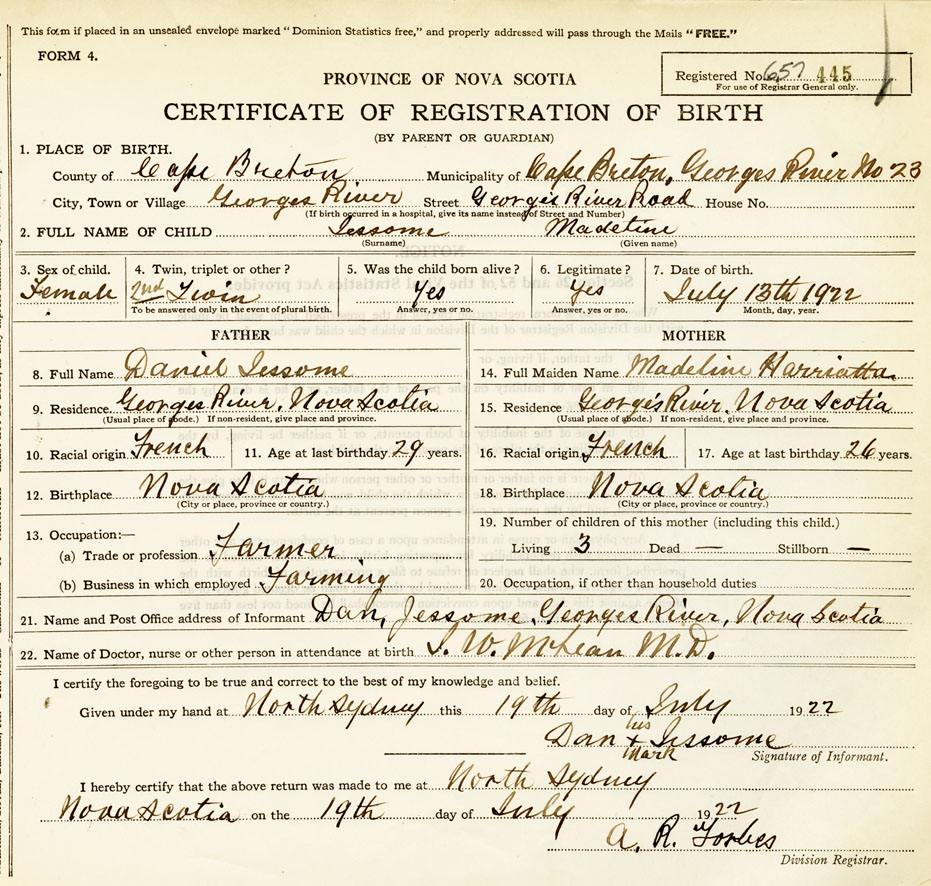 This form if placed in an unsealed envelope marked "Dominion Statistics free," and properly addressed will pass through the Mails "FREE."
FORM 4.
Registered No. 657 445
For use of Registrar General only.
PROVINCE OF NOVA SCOTIA
CERTIFICATE OF REGISTRATION OF BIRTH
(BY PARENT OR GUARDIAN)
1. PLACE OF BIRTH.
County of Cape Breton Municipality of Cape Breton, Georges River No 23
City, Town or Village Georges River Street Georges River Road House No.
(If birth occurred in a hospital, give its name instead of Street and Number)
2. FULL NAME OF CHILD Jessome Madeline
(Surname) (Given name)
3. Sex of child. 4. Twin, triplet or other? 5. Was the child born alive? 6. Legitimate? 7. Date of birth.
Female 2nd Twin Yes Yes July 13th 1922
To be answered only in the event of plural birth. Answer, yes or no. Answer, yes or no. Month, day, year.
FATHER MOTHER
8. Full Name Daniel Jessome 14. Full Maiden Name Madeline Harriatta
9. Residence Georges River, Nova Scotia 15. Residence Georges River, Nova Scotia
(Usual place of abode.) If non-resident, give place and province. (Usual place of abode.) If non-resident, give place and province.
10. Racial origin French 11. Age at last birthday 29 years. 16. Racial origin French 17. Age at last birthday 26 years.
12. Birthplace Nova Scotia 18. Birthplace Nova Scotia
(City or place, province or country.) (City or place, province or country.)
13. Occupation:— 19. Number of children of this mother (including this child.)
(a) Trade or profession Farmer Living 3 Dead — Stillborn —
(b) Business in which employed Farming 20. Occupation, if other than household duties
21. Name and Post Office address of Informant Dan, Jessome Georges River, Nova Scotia
22. Name of Doctor, nurse or other person in attendance at birth W. McLean M.D.
I certify the foregoing to be true and correct to the best of my knowledge and belief.
Given under my hand at North Sydney this 19th day of July 1922
his
Dan x Jessome
mark
Signature of Informant.
I hereby certify that the above return was made to me at North Sydney
Nova Scotia on the 19th day of July 1922
A. R. Forbes
Division Registrar.